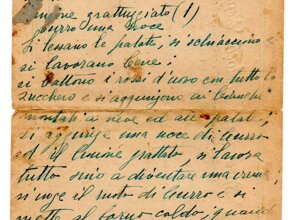 limone grattugiato (1)
burro una noce
Si lessano le patate, si schiacciono e
si lavorano bene;
si battono i rossi d'uovo con tutto lo
zucchero e si aggiungono ai bianchi
montati a neve ed alle patate;
si aggiunge una noce di burro
ed il limone grattato, si lavora
tutto sino a diventare una crema,
si unge il ruoto di burro e si
mette al forno caldo,